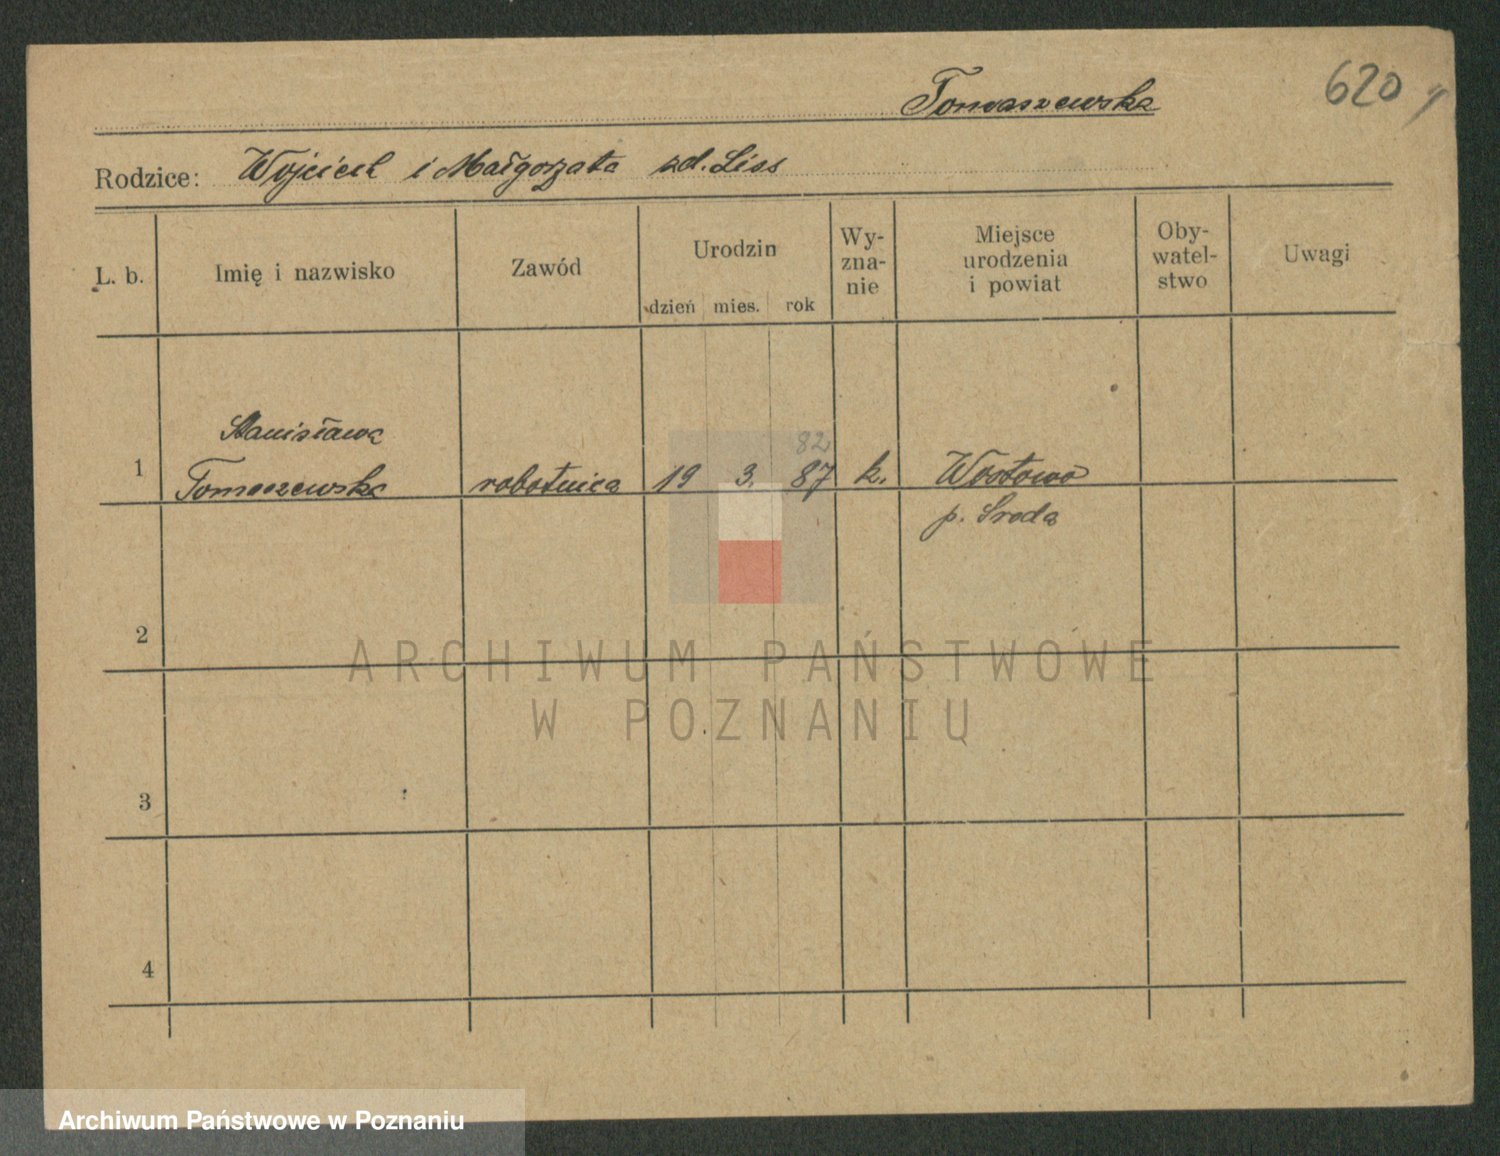 Tomaszewska
620
Rodzice: Wojciech i Małgorzata zd. Liss
L. b.
Imię i nazwisko
Zawód
Urodzin
dzień mies. rok
Wy-
zna-
nie
Miejsce
urodzenia
i powiat
Oby-
watel-
stwo
Uwagi
Stanisława
82
1 Tomaszewska robotnica 19 3. 87 k. Wostowo
p. Sroda
2
3
4
ARCHIWUM PAŃSTWOWE
W POZNANIU
Archiwum Państwowe w Poznaniu